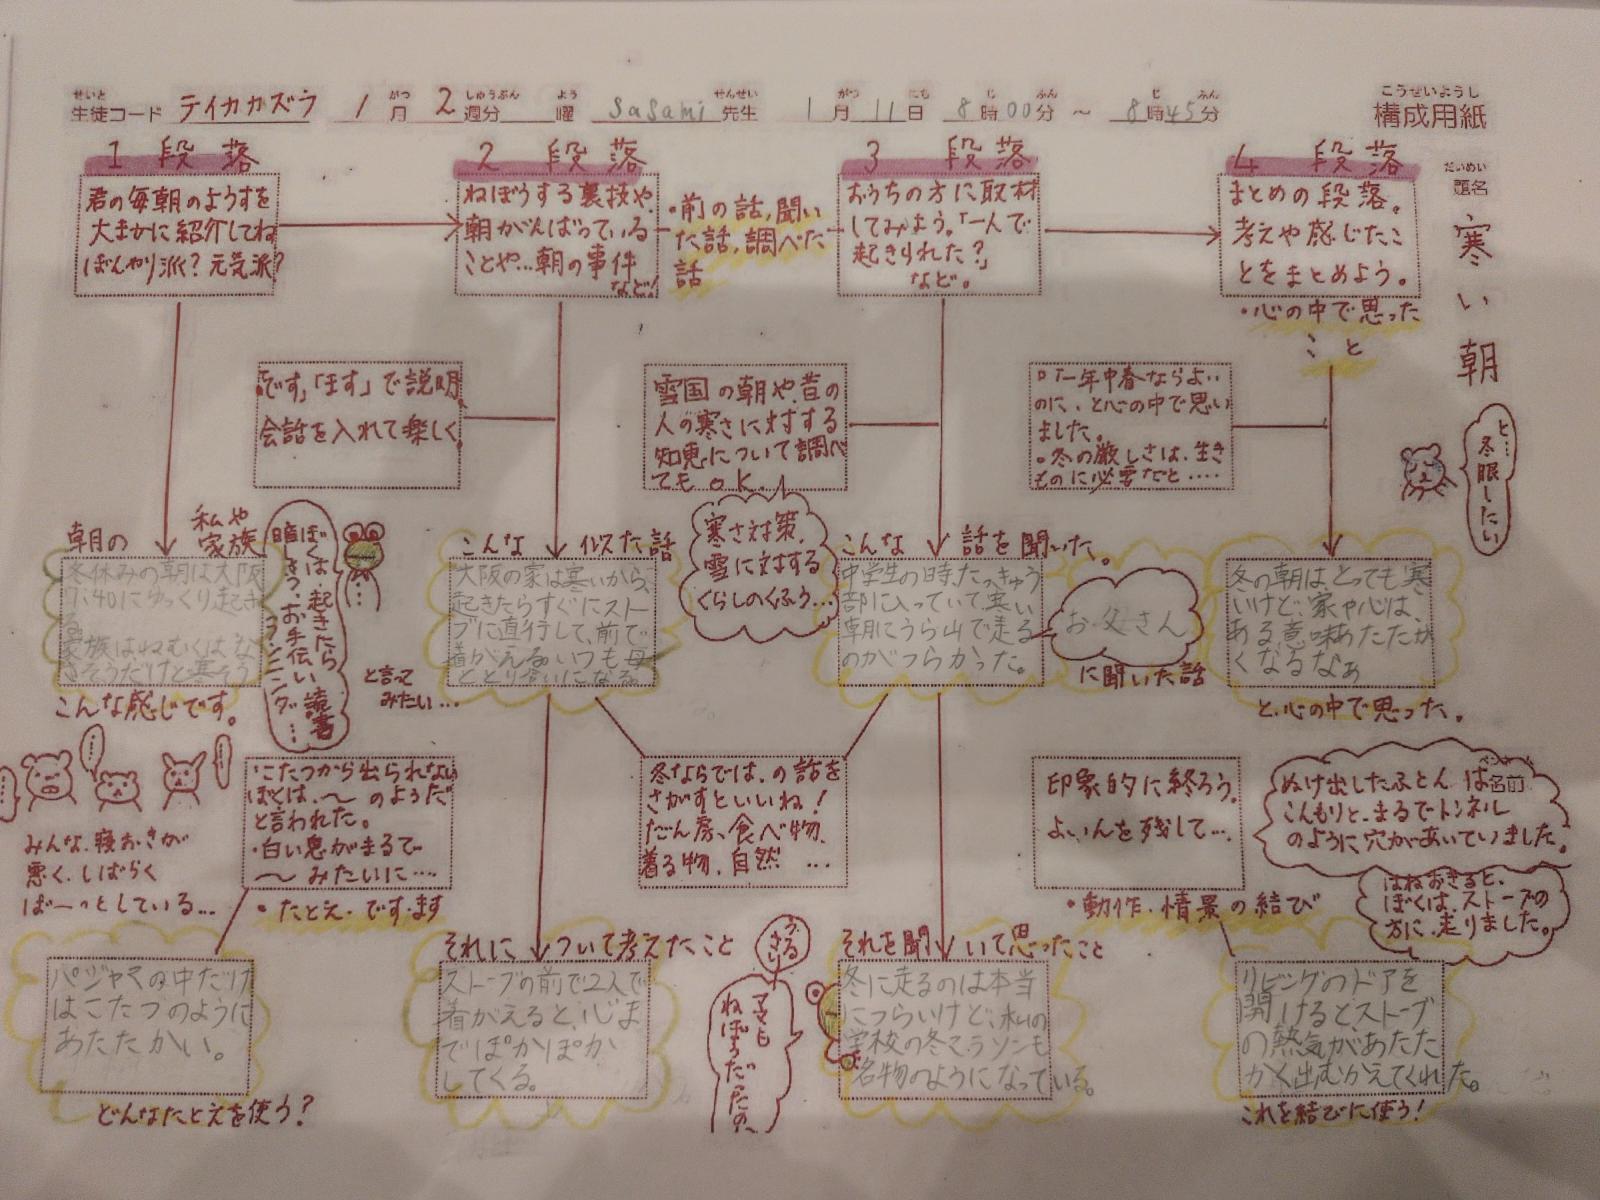 せいと がつ しゅうぶん よう せんせい がつ にち じ ふん じ ふん
生徒コード テイカカズラ 1月 2週分 曜 sasami 先生 1月11日 8時00分 ~ 8時45分
こうせいようし
構成用紙
だいめい
題名
寒い朝
1 段落
君の毎朝のようすを
大まかに紹介してね
ぼんやり派?元気派?
2 段落
ねぼうする裏技や、
朝がんばっている
ことや…朝の事件
など!
・前の話,聞い
た話,調べた
話
3 段落
おうちの方に取材
してみよう。「一人で
起きられた?」
など。
4 段落
まとめの段落。
考えや感じたこ
とをまとめよう。
・心の中で思った
こと
「です」「ます」で説明。
会話を入れて楽しく。
雪国の朝や、昔の
人の寒さに対する
知恵について調べ
てもOK.
寒さ対策,
雪に対する
くらしのくふう…
「一年中春ならよい
のに、と心の中で思い
ました。
。冬の厳しさは、生き
ものに必要だと……
と…
冬眠したい
朝の
私や
家族
冬休みの朝は大阪
7:40にゆっくり起き
る
家族はねむくはな
さそうだけど寒そう
こんな感じです。
ぼくは、起きたら
暗しょう、お手伝い、読書
ランニング…
…
と言って
みたい…
こんな 似た話
大阪の家は寒いから、
起きたらすぐにストー
ブに直行して、前で
着がえる。いつも母
ととり合いになる。
こんな 話を聞いた。
中学生の時、たっきゅう
部に入っていて、寒い
朝にうら山で走る
のがつらかった。
お父さん
に聞いた話
冬の朝は、とっても寒
いけど、家や心は、
ある意味あたたか
くなるなぁ
と、心の中で思った。
みんな、寝おきが
悪く、しばらく
ばーっとしている…
・こたつから出られない
ぼくは、〜のようだ
と言われた。
・白い息がまるで
〜みたいに…
・たとえ・です・ます
冬ならでは、の話を
さがすといいね!
だん房、食べ物、
着る物、自然 …
印象的に終ろう。
よいんを残して…
・動作・情景の結び
ぬけ出したふとんは
こんもりと、まるでトンネル
のように穴があいていました。
名前
はねおきると、
ぼくは、ストーブの
方に、走りました。
パジャマの中だけ
はこたつのように
あたたかい。
どんなたとえを使う?
それについて考えたこと
ストーブの前で2人で
着がえると、心ま
でぽかぽか
してくる。
うるさい
ママも
ねぼうだったの、
それを聞いて思ったこと
冬に走るのは本当
につらいけど、私の
学校の冬マラソンも
名物のようになっている。
リビングのドアを
開けるとストーブ
の熱気があたた
かく出むかえてくれた。
これを結びに使う!